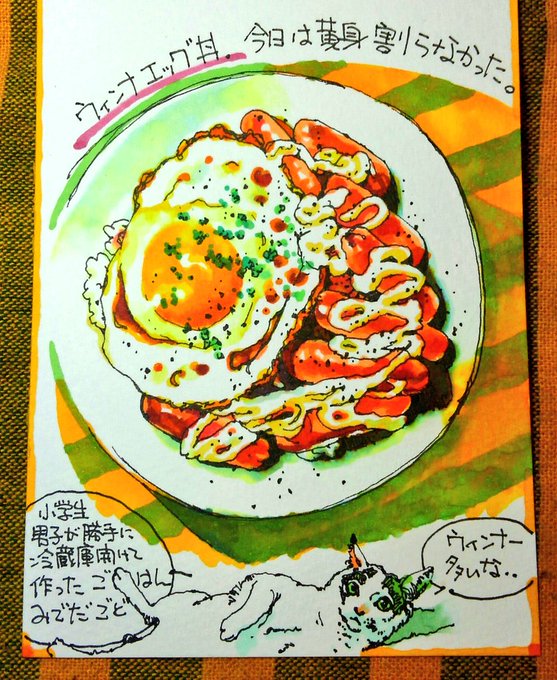 ウィンナエッグ丼。今日は黄身割らなかった。
小学生
男子が勝手に
冷蔵庫開けて
作ったごはん
みでだごど
ウィンナー
多いな..